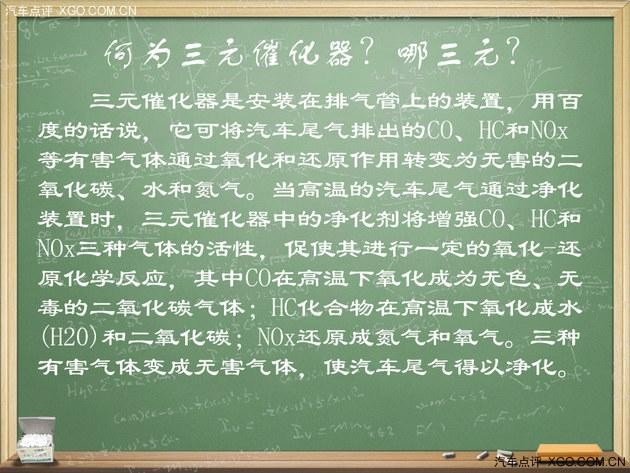 汽车点评 XGO.COM.CN
何为三元催化器？哪三元？
三元催化器是安装在排气管上的装置，用百
度的话说，它可将汽车尾气排出的CO、HC和NOx
等有害气体通过氧化和还原作用转变为无害的二
氧化碳、水和氮气。当高温的汽车尾气通过净化
装置时，三元催化器中的净化剂将增强CO、HC和
NOx三种气体的活性，促使其进行一定的氧化-还
原化学反应，其中CO在高温下氧化成为无色、无
毒的二氧化碳气体；HC化合物在高温下氧化成水
(H20)和二氧化碳；NOx还原成氮气和氧气。三种
有害气体变成无害气体，使汽车尾气得以净化。
汽车点评 XGO.COM.CN